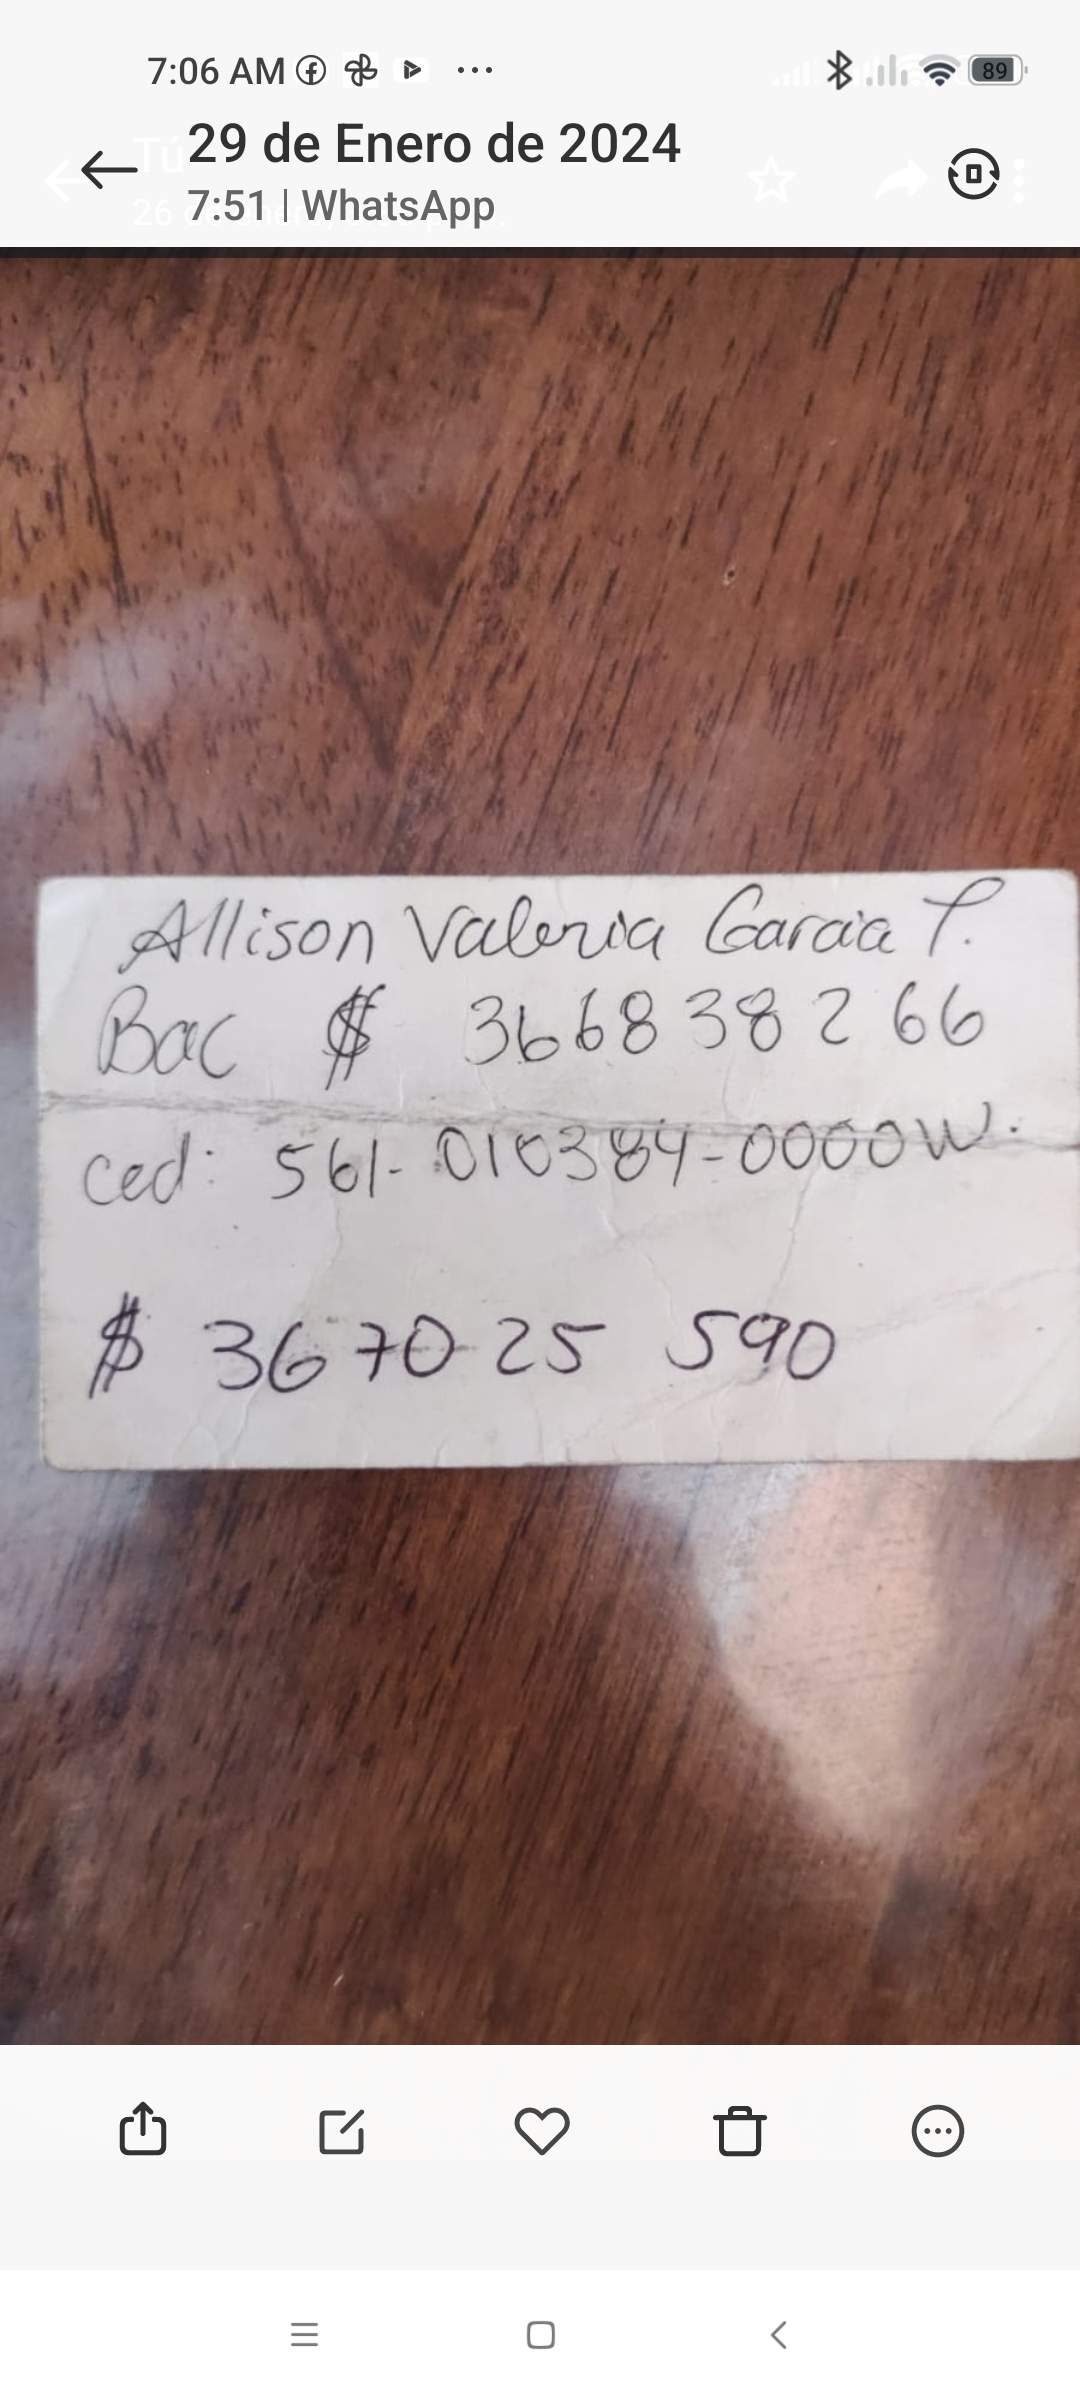 7:06 AM
89
29 de Enero de 2024
7:51 | WhatsApp
Allison Valeria Garcia P.
Bac $ 366838266
ced: 561-010384-0000W.
$ 367025 590